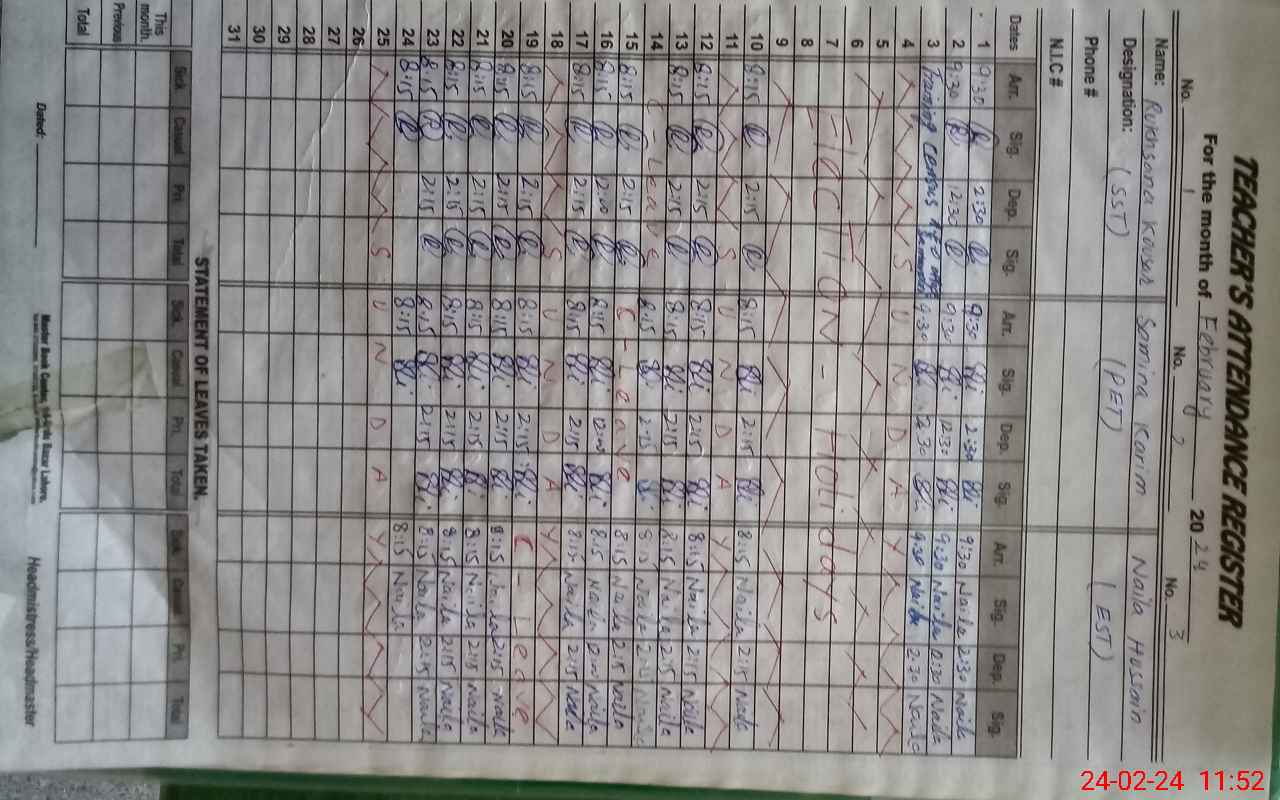 TEACHER'S ATTENDANCE REGISTER
For the month of February 2024
No. 1 No. 2 No. 3
Name: Rukhsana Kousar Samina Karim Naila Hussain
Designation: (SST) (PET) (EST)
Phone #
N.I.C #
Dates Arr. Sig. Dep. Sig. Arr. Sig. Dep. Sig. Arr. Sig. Dep. Sig.
1 9:30 2:30 9:30 2:30 9:30 Naila 2:30 Naila
2 9:30 12:30 9:30 12:30 9:30 Naila 12:30 Naila
3 Training census 9:30 2:30 9:30 Naila 2:30 Naila
4 S U N D A Y
5
6
7 Election - Holidays
8
9
10 8:15 2:15 8:15 2:15 8:15 Naila 2:15 Naila
11 S U N D A Y
12 8:15 2:15 8:15 2:15 8:15 Naila 2:15 Naila
13 8:15 2:15 8:15 2:15 8:15 Naila 2:15 Naila
14 C-Leave 8:15 2:15 8:15 Naila 2:15 Naila
15 8:15 2:15 C-Leave 8:15 Naila 2:15 Naila
16 8:15 12:00 8:15 12:00 8:15 Naila 12:00 Naila
17 8:15 2:15 8:15 2:15 8:15 Naila 2:15 Naila
18 S U N D A Y
19 8:15 2:15 8:15 2:15 C-Leave
20 8:15 2:15 8:15 2:15 8:15 Naila 2:15 Naila
21 8:15 2:15 8:15 2:15 8:15 Naila 2:15 Naila
22 8:15 2:15 8:15 2:15 8:15 Naila 2:15 Naila
23 8:15 2:15 8:15 2:15 8:15 Naila 2:15 Naila
24 8:15 8:15 8:15 Naila
25 S U N D A Y
26
27
28
29
30
31
STATEMENT OF LEAVES TAKEN.
Sick Casual Pri. Total Sick Casual Pri. Total Sick Casual Pri. Total
This month.
Previous
Total
Dated:
Headmistress/Headmaster
24-02-24 11:52